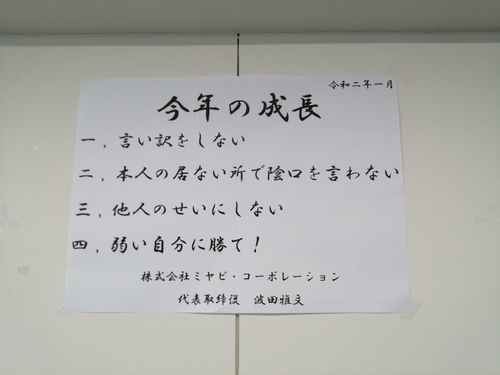 令和二年一月
今年の成長
一，言い訳をしない
二，本人の居ない所で陰口を言わない
三，他人のせいにしない
四，弱い自分に勝て！
株式会社ミヤビ・コーポレーション
代表取締役　波田雅文